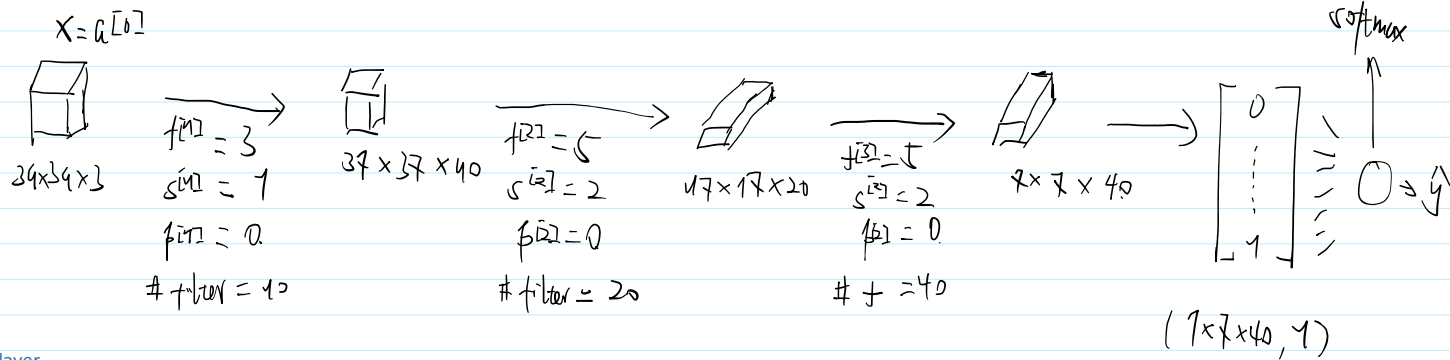 X = a[0]
39×39×3
f[1] = 3
s[1] = 1
p[1] = 0
# filter = 10
37×37×40
f[2] = 5
s[2] = 2
p[2] = 0
# filter = 20
17×17×20
f[3] = 5
s[3] = 2
p[2] = 0
# f = 40
7×7×40
0
1
(7×7×40, 1)
softmax
ŷ
layer